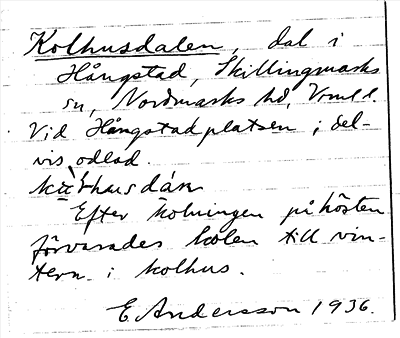 Kolhusdalen, dal i
Hångstad, Skillingmarks
sn, Nordmarks hd, Vrml.
Vid Hångstadplatsen; del-
vis odlad.
Efter kolningen på hösten
förvarades kolen till vin-
tern i kolhus.
E Andersson 1936.